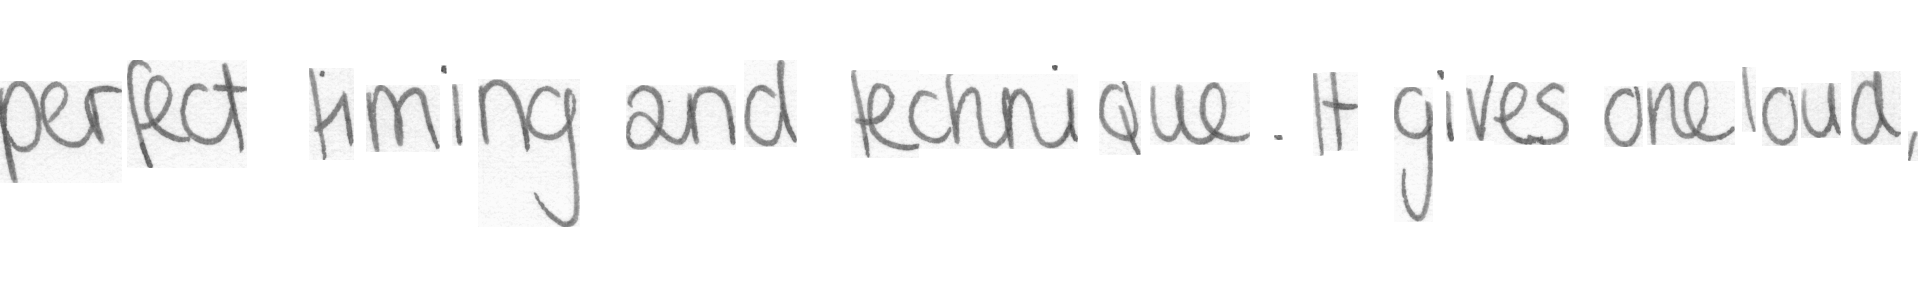 perfect timing and technique. It gives one loud,